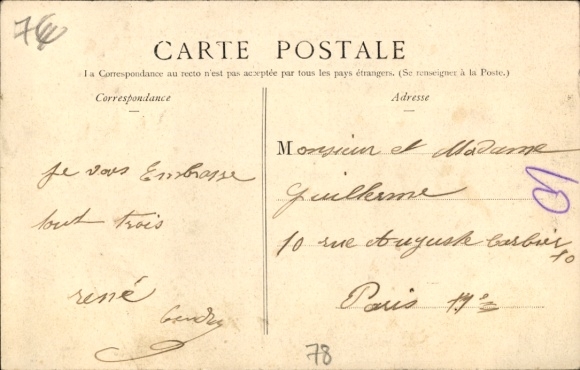 CARTE POSTALE
La Correspondance au recto n'est pas acceptée par tous les pays étrangers. (Se renseigner à la Poste.)
Correspondance
Je vous Embrasse
tout trois
rené
Adresse
Monsieur et Madame
Guillerme
10 rue Auguste barbier
10
Paris 11e
78